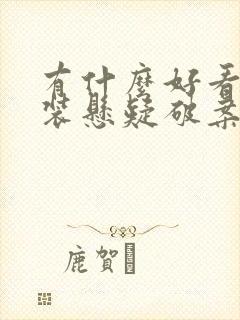 有什麼好看
裝懸疑破案
鹿賀